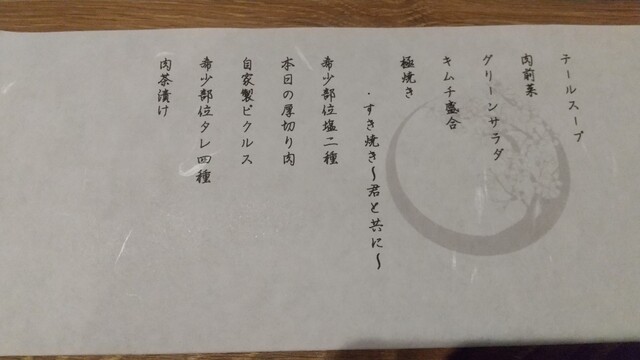 テールスープ
肉前菜
グリーンサラダ
キムチ盛合
極焼き
・すき焼き〜君と共に〜
希少部位塩二種
本日の厚切り肉
自家製ピクルス
希少部位タレ四種
肉茶漬け